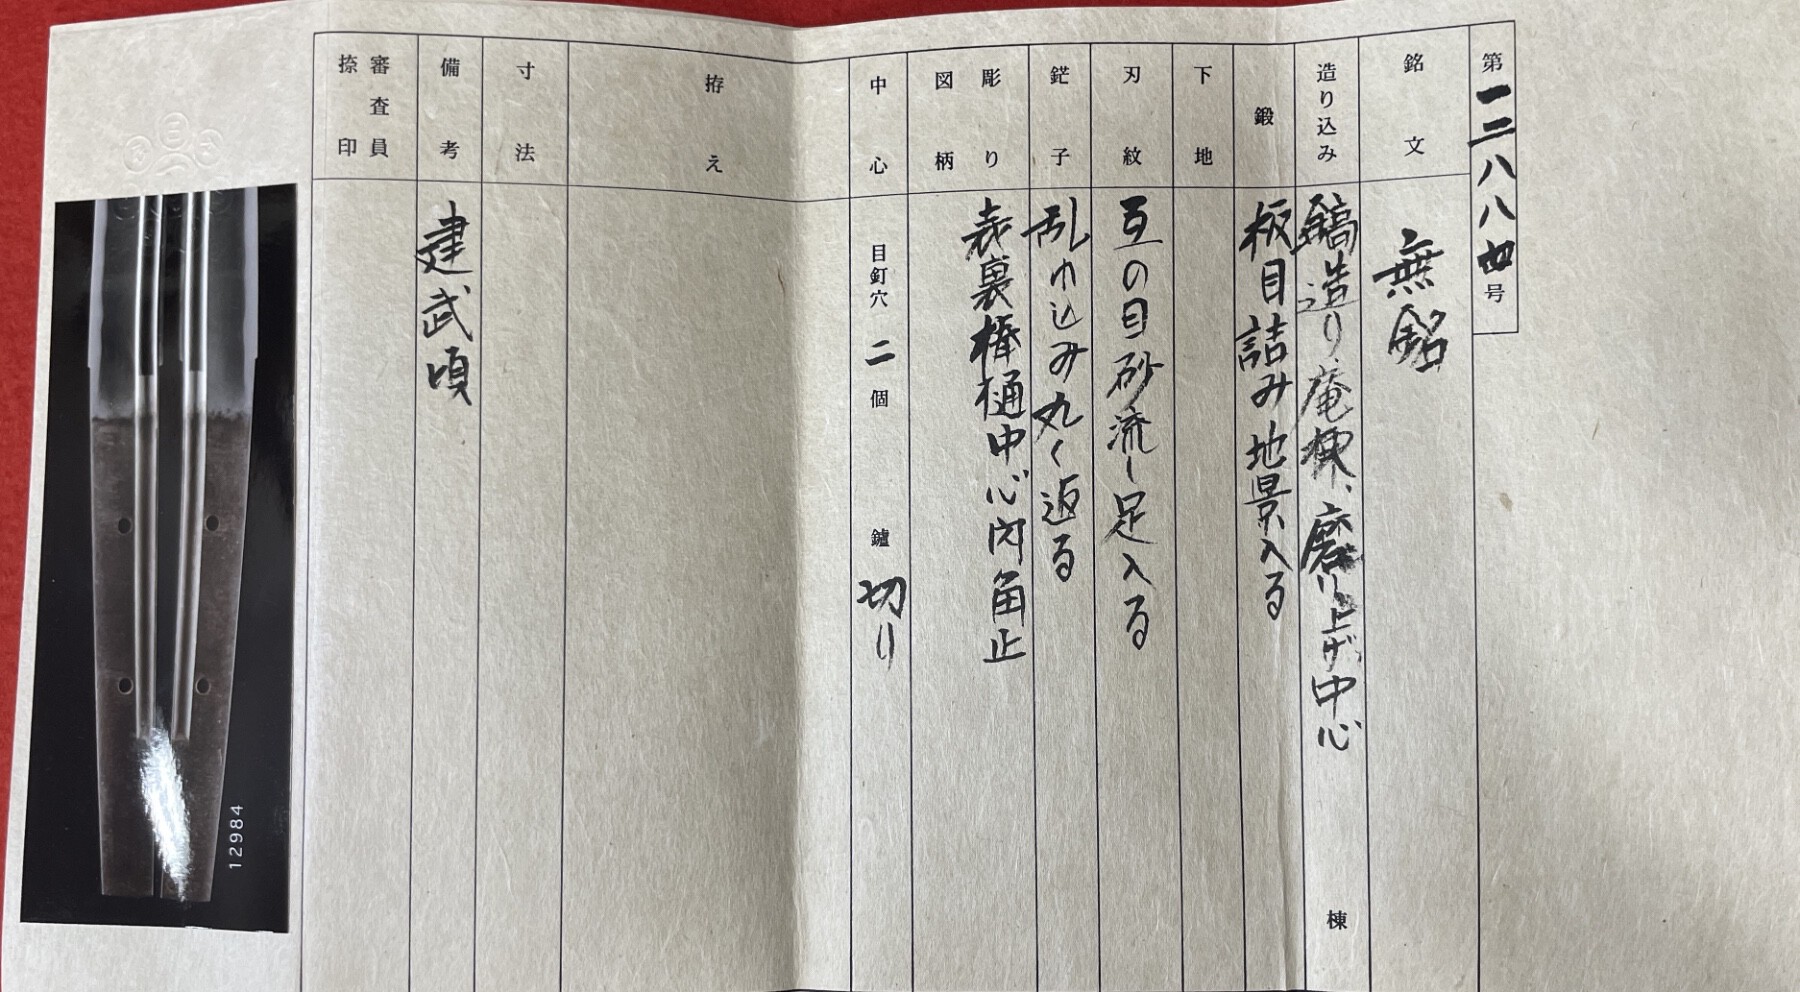 第一二八八四号
銘文 無銘
造り込み 鎬造り庵棟、磨り上げ中心 棟
鍛 板目詰み地景入る
下地
刃紋 互の目砂流し足入る
鋩子 乱れ込み丸く返る
彫り 表裏棒樋中心内角止
図柄
中心 目釘穴 二 個 鑢 切り
拵え
寸法
備考 建武頃
審査員
捺印
12984